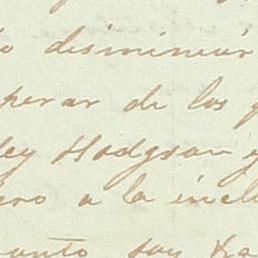 disminuir
perar de los
ley Hodgson y
ero a la incl
mento soy